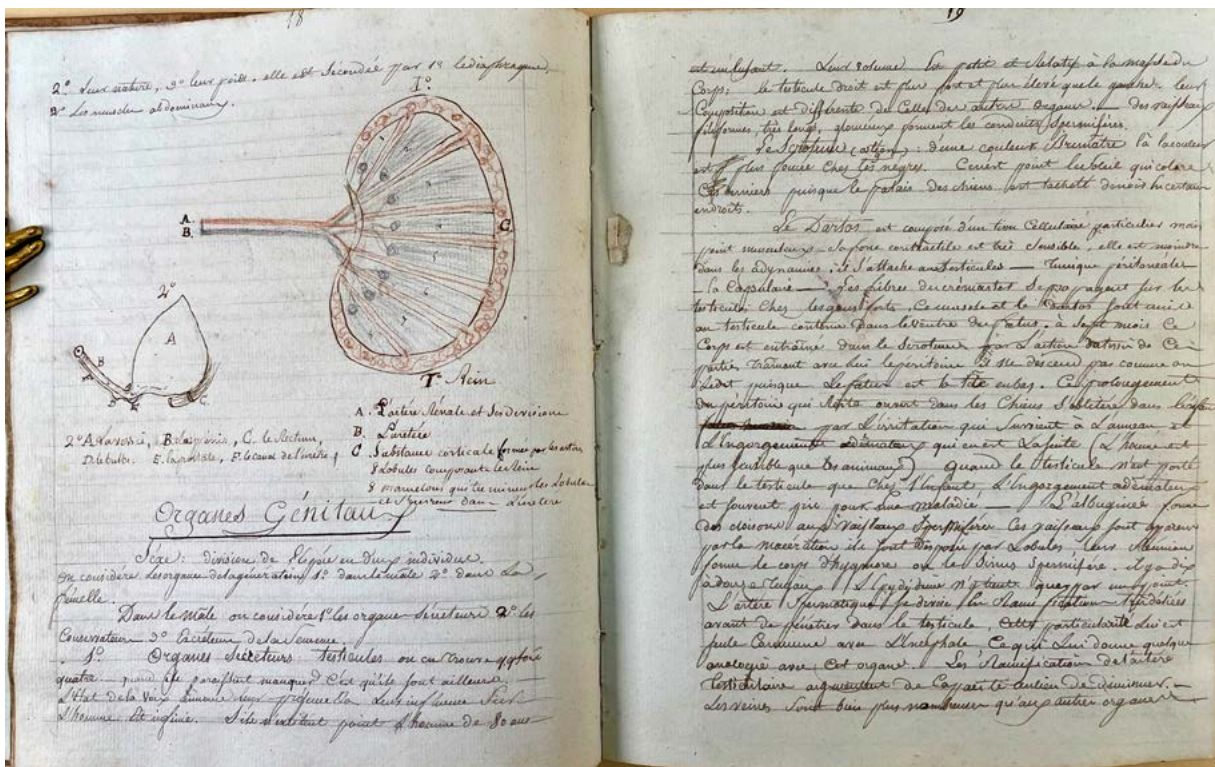 18
2º Leur nature, 3º leur poids. elle est secondée par 1º le diaphragme,
2º Les muscles abdominaux.
1º
A.
B.
C.
1º Rein
2º
A
B
C.
D
E
A. L'artère Rénale et ses divisions
B. L'uretère
C. Substance corticale formée par les
8 Lobules composant le Rein
8 mamelons qui terminent les Lobules
et s'ouvrent dans L'uretère
2º A. la vessie, B. le pénis, C. le Rectum,
D. le bulbe. E. la prostate, F. le canal de l'urètre,
Organes Génitaux
Sexe: division de l'Espèce en Deux individus.
on considère les organes de la génération, 1º dans le mâle 2º dans La
femelle.
Dans le mâle on considère 1º les organes Sécréteurs 2º les
Conservateurs 3º Excréteurs de la Semence.
1º Organes Sécréteurs testicules on en trouve qqfois
quatre quand ils paraissent manquer C'est qu'ils sont ailleurs
L'Etat de la voix Leur influence sur
L'homme Est infinie. S'ils n'existent point L'homme de 80 ans
19
est un Enfant. Leur volume Est petit et relatif à la masse du
Corps: le testicule droit est plus fort et plus élevé que le gauche. leur
Composition est différente de Celle des autres organes. — Des vaisseaux
filiformes, très longs, forment les conduits Spermifères.
Le Scrotum : d'une couleur Brunâtre
est plus foncée chez les nègres. Ce n'est point le soleil qui colore
Ces derniers puisque le palais des chiens est tacheté de noir en certains
endroits.
Le Dartos est composé d'un tissu Cellulaire particulier mais
point musculeux. Sa force contractile est très sensible, elle est moindre
dans les adynamies, il s'attache aux testicules — Tunique péritonéale
— la Capsulaire — Les fibres du crémaster Se propagent sur le
testicule Chez les gens forts. Ce muscle et le Dartos sont
au testicule contenu dans le ventre du fœtus. à Sept mois Ce
Corps est entraîné dans le Scrotum par L'action de Ces
parties Traînant avec lui le péritoine il ne descend pas comme on
Le dit puisque Le fœtus est la tête en bas. Ce prolongement
du péritoine qui Reste ouvert dans les Chiens S'oblitère dans
par L'irritation qui Survient à L'anneau et
L'Engorgement œdémateux qui en est La suite (L'homme est
plus sensible que les animaux) Quand le testicule n'est porté
dans le testicule que Chez L'Enfant, L'Engorgement œdémateux
est souvent pris pour une maladie. — L'albuginée forme
des cloisons aux Vaisseaux Spermifères Ces vaisseaux sont
par la macération ils sont Disposés par Lobules, leur Réunion
forme le corps d'hygmore ou le Sinus Spermifère. il y a dix
à douze Tuyaux. L'Epydidyme n'y tient que par un point.
L'artère Spermatique Se divise En Ramifications
avant de pénétrer dans le testicule, Cette particularité lui est
seule Commune avec L'Encéphale, Ce qui Lui donne quelque
analogie avec Cet organe. Les Ramifications de l'artère
Testiculaire augmentent de Capacité au lieu de diminuer. —
Les veines Sont bien plus nombreuses qu'aux autres organes